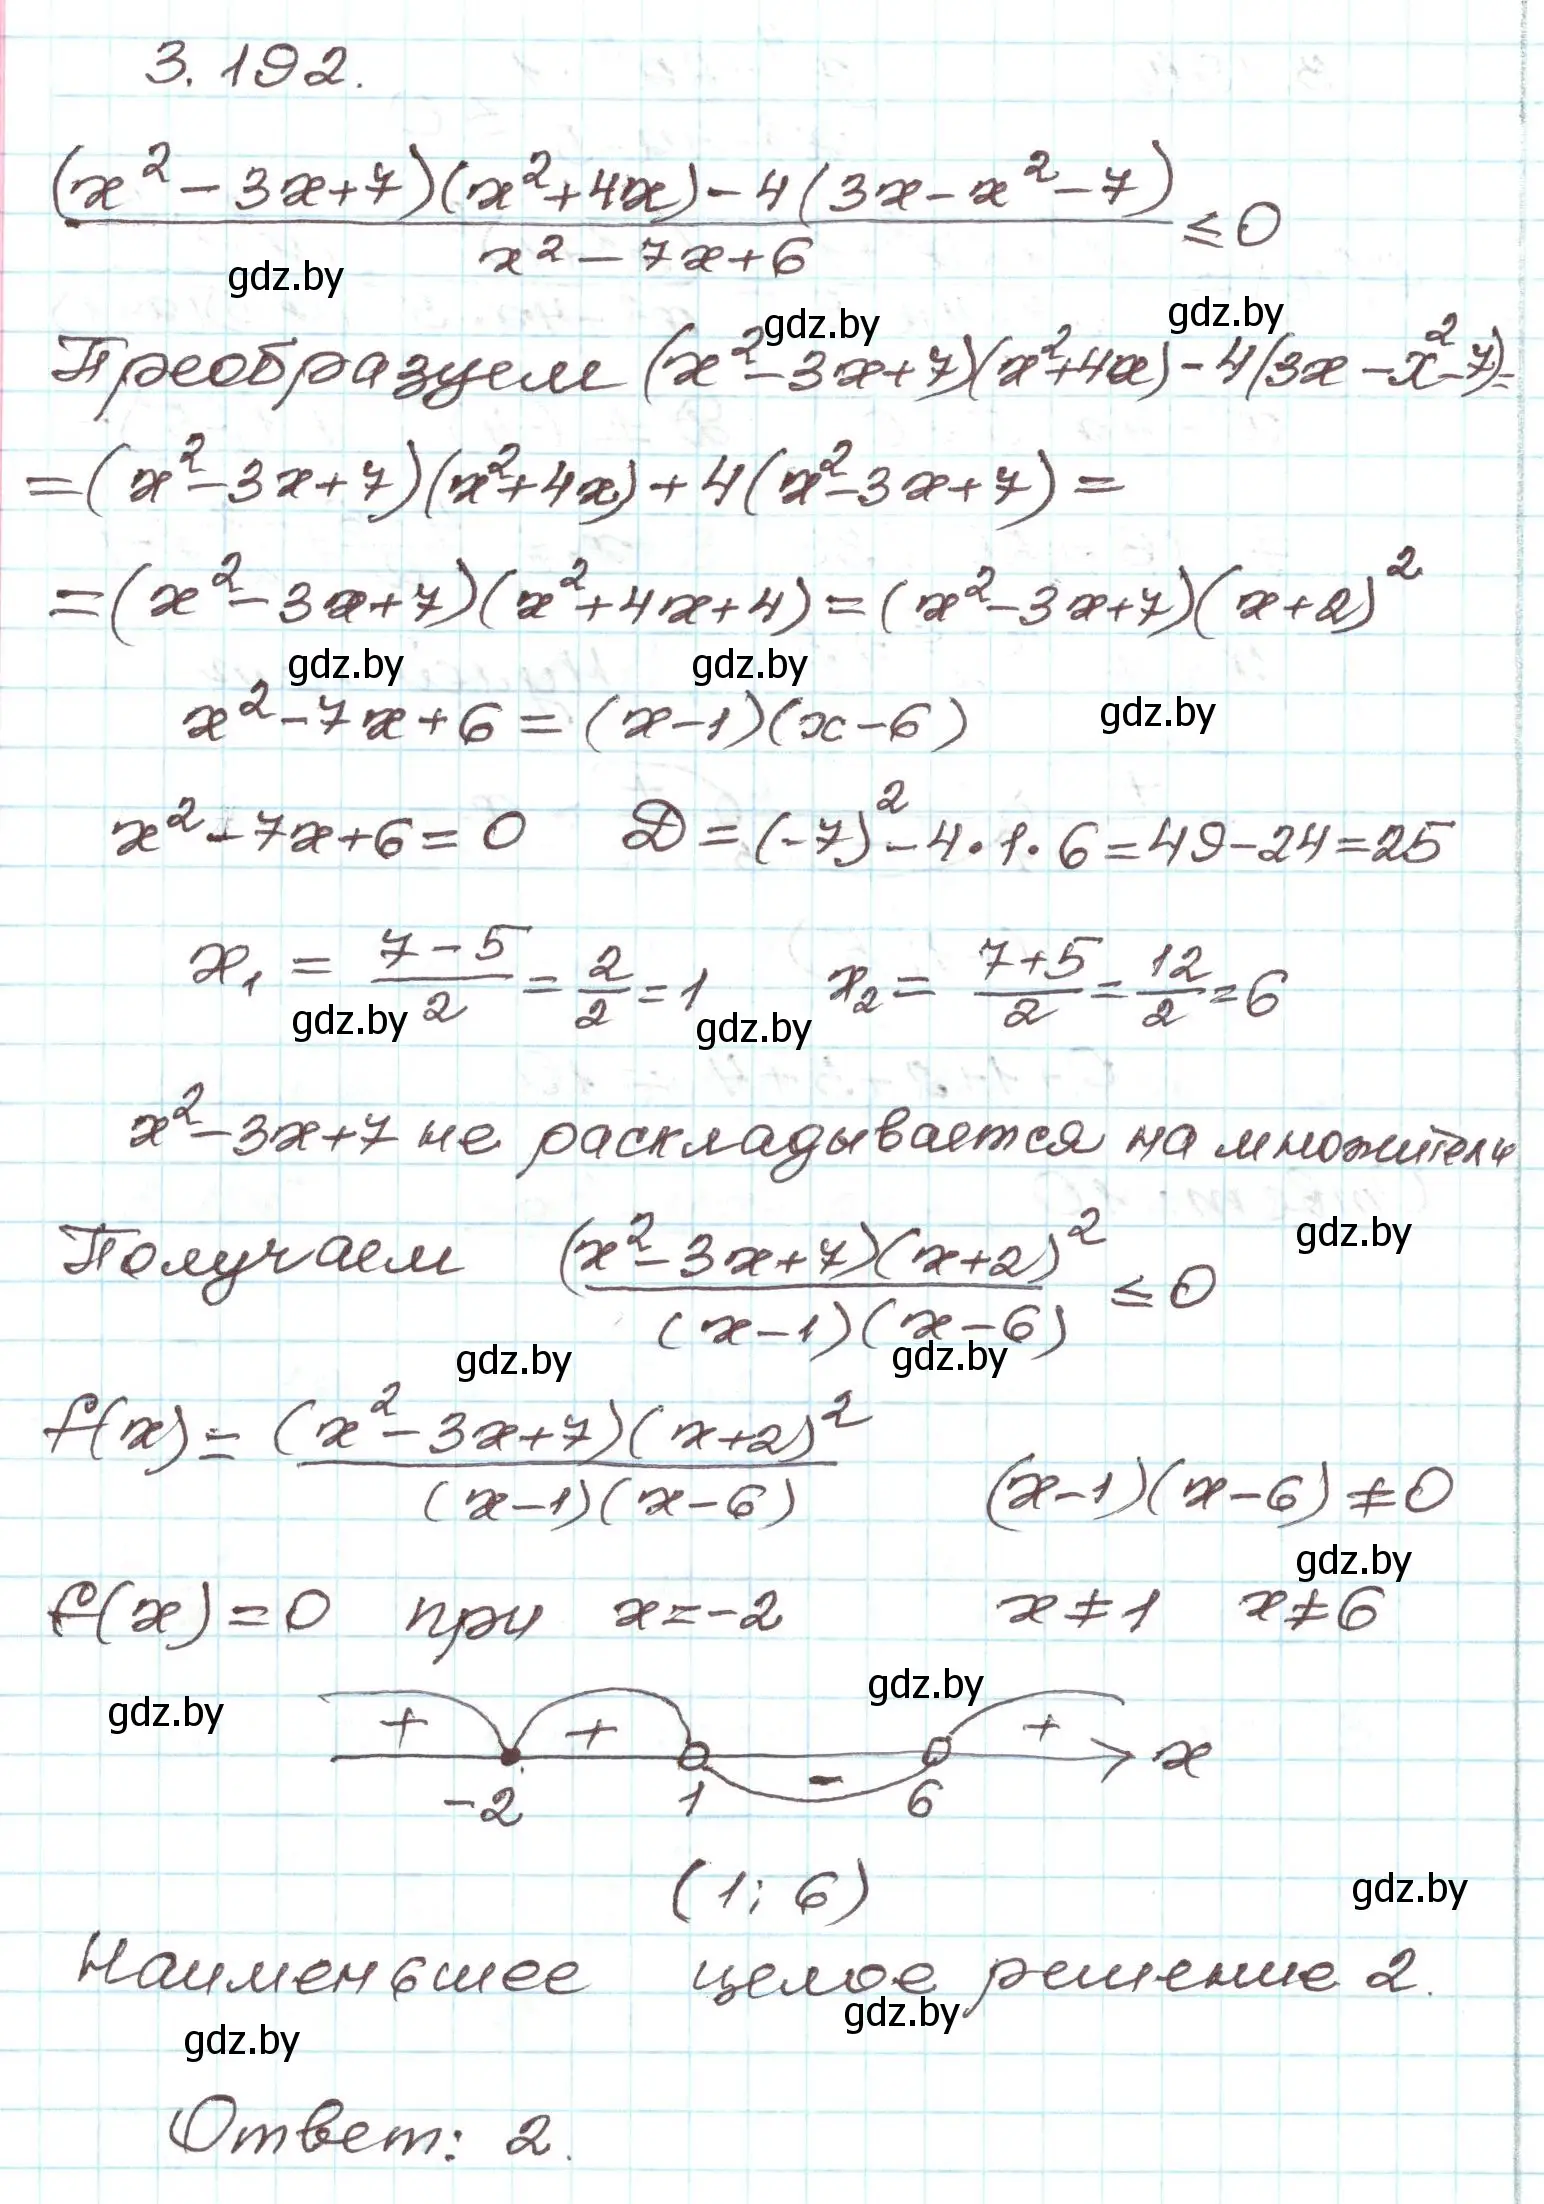 3.192.
(x² - 3x + 7)(x² + 4x) - 4(3x - x² - 7)
≤ 0
x² - 7x + 6
gdz.by
gdz.by gdz.by
Преобразуем (x² - 3x + 7)(x² + 4x) - 4(3x - x² - 7) =
= (x² - 3x + 7)(x² + 4x) + 4(x² - 3x + 7) =
= (x² - 3x + 7)(x² + 4x + 4) = (x² - 3x + 7)(x + 2)²
gdz.by gdz.by
x² - 7x + 6 = (x - 1)(x - 6) gdz.by
x² - 7x + 6 = 0 D = (-7)² - 4·1·6 = 49 - 24 = 25
x₁ = (7 - 5)/2 = 2/2 = 1 x₂ = (7 + 5)/2 = 12/2 = 6
gdz.by gdz.by
x² - 3x + 7 не раскладывается на множители
gdz.by
Получаем (x² - 3x + 7)(x + 2)² / (x - 1)(x - 6) ≤ 0
gdz.by gdz.by
f(x) = (x² - 3x + 7)(x + 2)² / (x - 1)(x - 6) (x - 1)(x - 6) ≠ 0
gdz.by
f(x) = 0 при x = -2 x ≠ 1 x ≠ 6
gdz.by gdz.by
+ + - + x
-2 1 6
(1; 6) gdz.by
Наименьшее целое решение 2.
gdz.by gdz.by
Ответ: 2.